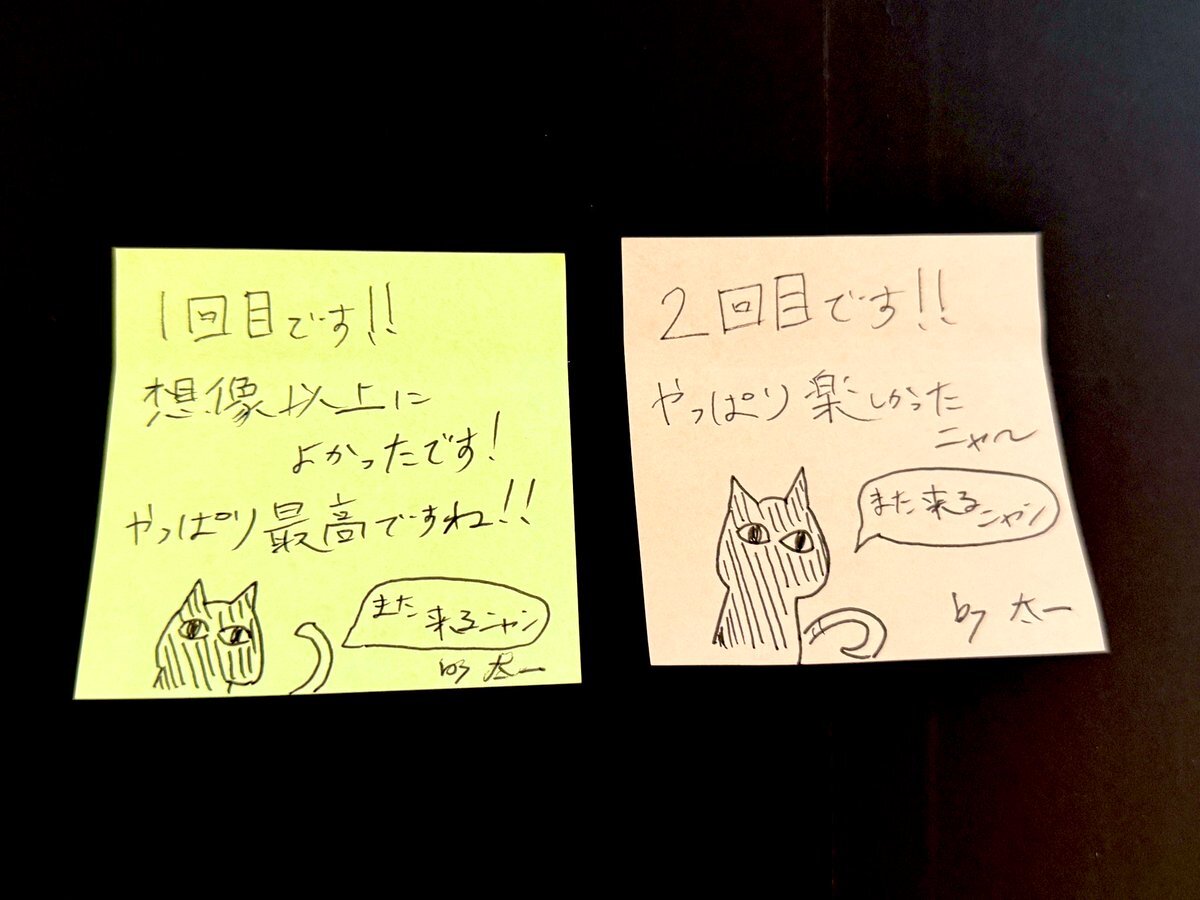 1回目です!!
想像以上に
よかったです!
やっぱり最高ですね!!
また
来るニャン
by 太一
2回目です!!
やっぱり楽しかった
ニャ〜
また来るニャン
by 太一